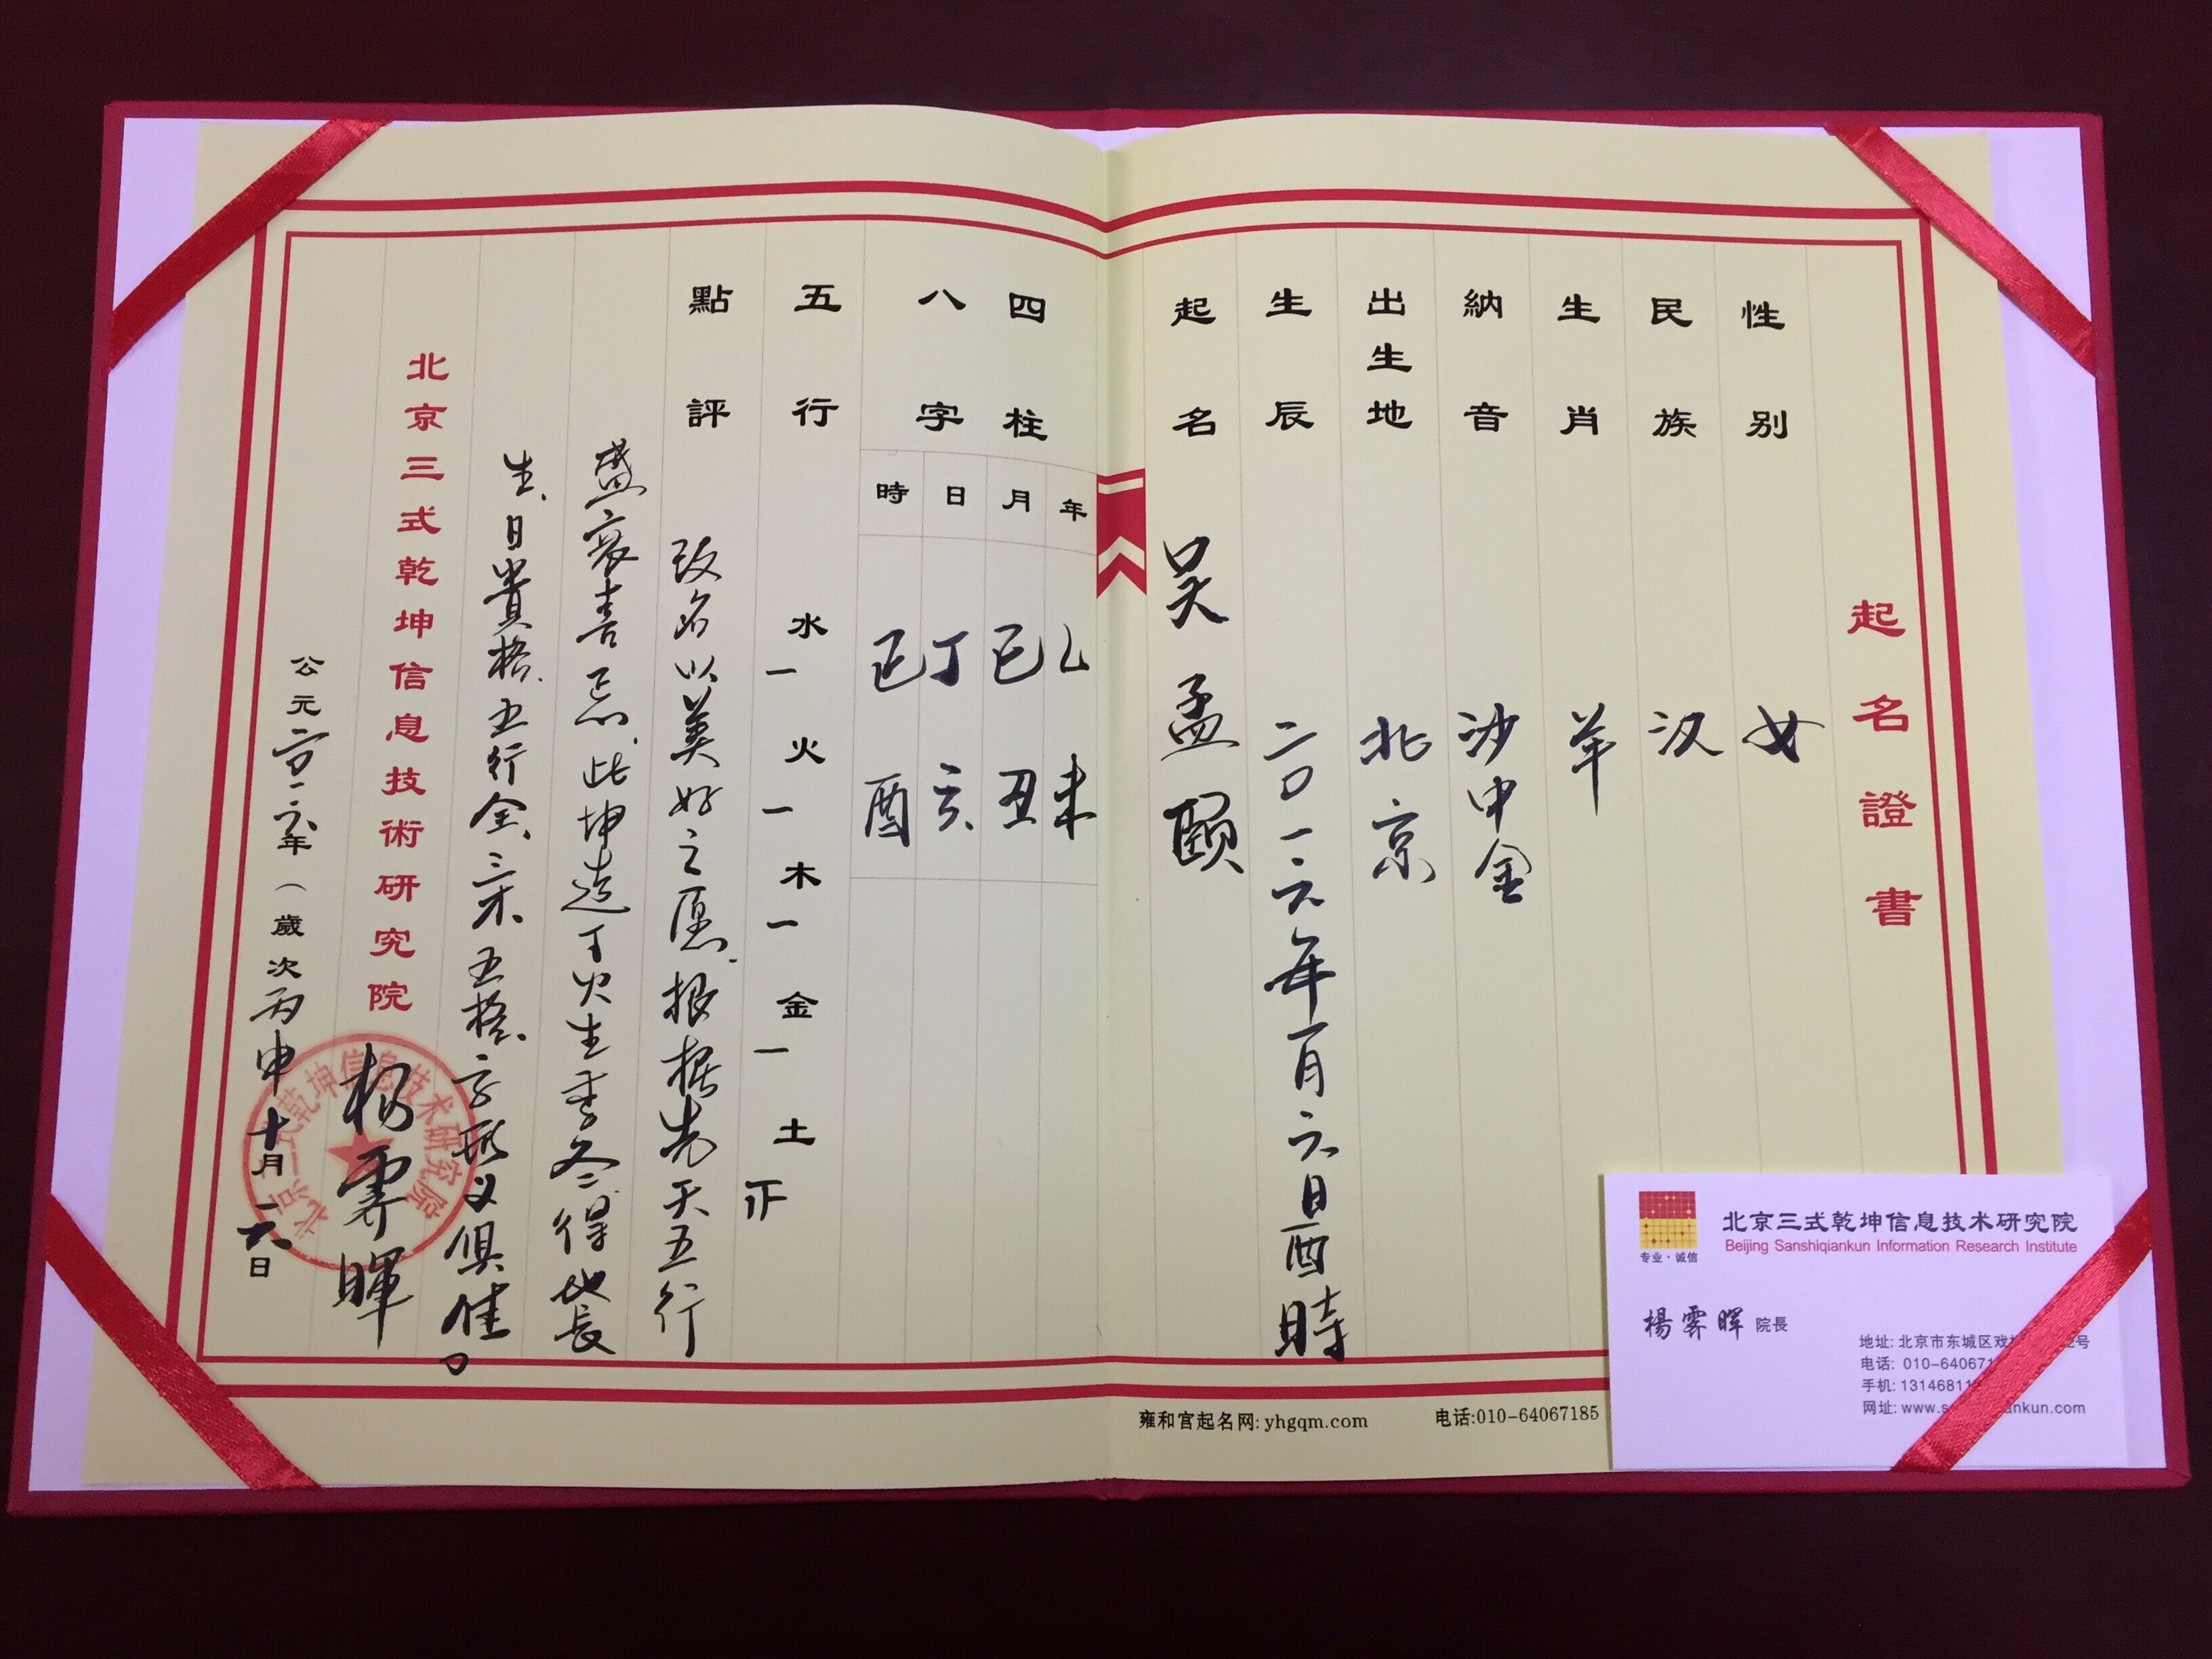 起名證書
性别 女
民族 汉
生肖 羊
納音 沙中金
出生地 北京
生辰 二〇一六年一月六日酉時
起名 吴孟颐
四柱
八字
年 乙未
月 己丑
日 丁亥
時 己酉
五行 水一 火一 木一 金一 土正
點評 改名以美好之愿.根据先天五行
盛衰喜忌.此坤造丁火生季冬.得地長
生.日貴格.五行全.三才.五格.字形义俱佳。
北京三式乾坤信息技術研究院 楊霽暉
公元二〇一六年(歲次丙申十月一六日
北京三式乾坤信息技术研究院
雍和宫起名网:yhgqm.com 电话:010-64067185
专业·诚信
北京三式乾坤信息技术研究院
Beijing Sanshiqiankun Information Research Institute
楊霽暉 院長
地址:北京市东城区戏 2号
电话: 010-640671
手机:13146811
网址:www.s ankun.com